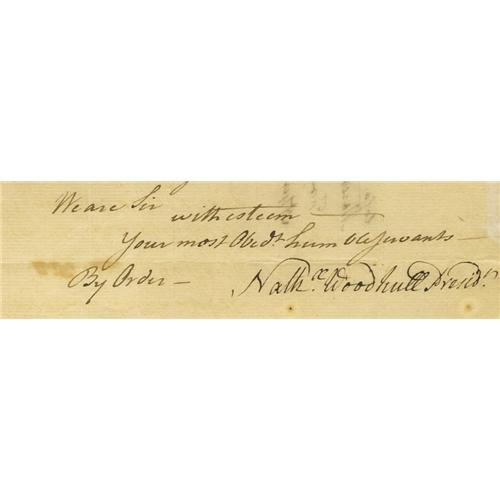 We are Sir with esteem
Your most Obedt. humble servants
By Order — Nathl. Woodhull Presidt.